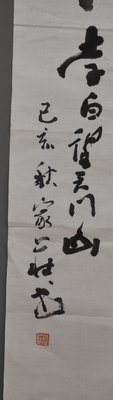 李白望天门山
己亥秋家